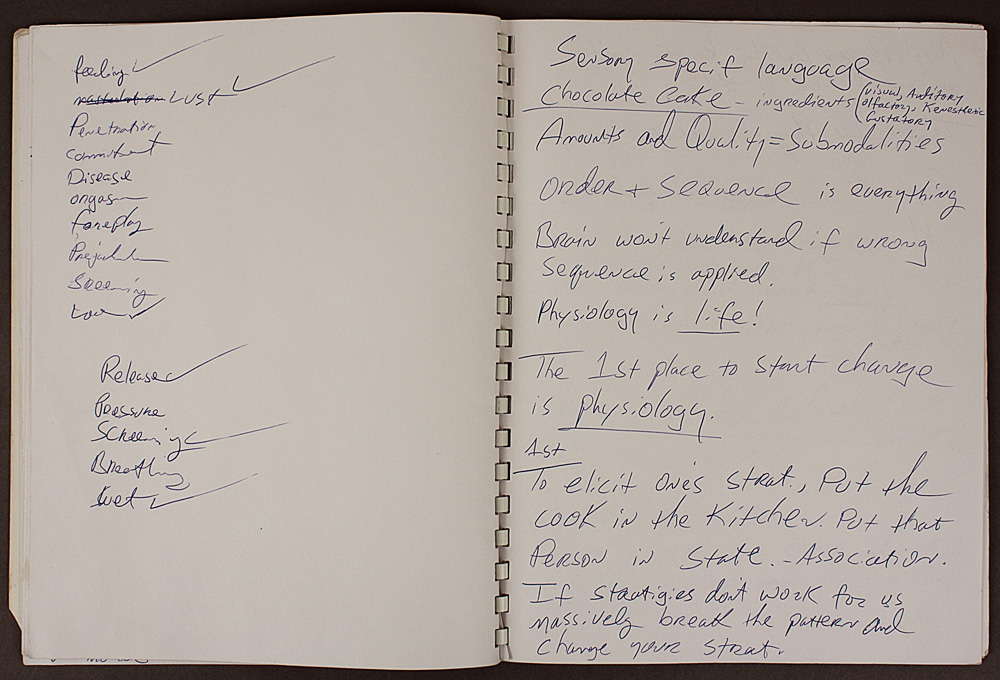 feeling
masturbation LUST
Penetration
commitment
Disease
orgasm
foreplay
Screaming
Love
Release
Pressure
Screaming
Breathing
wet
Sensory specif language
Chocolate Cake - ingredients (visual, Auditory
olfactory, Kenesthetic
Gustatory
Amounts and Quality = Submodalities
Order + Sequence is everything
Brain won't understand if wrong
sequence is applied.
Physiology is life!
The 1st place to start change
is physiology.
1st
To elicit one's strat., Put the
cook in the Kitchen. Put that
Person in State. - Association.
If stratigies don't work for us
massively break the pattern and
change your strat.